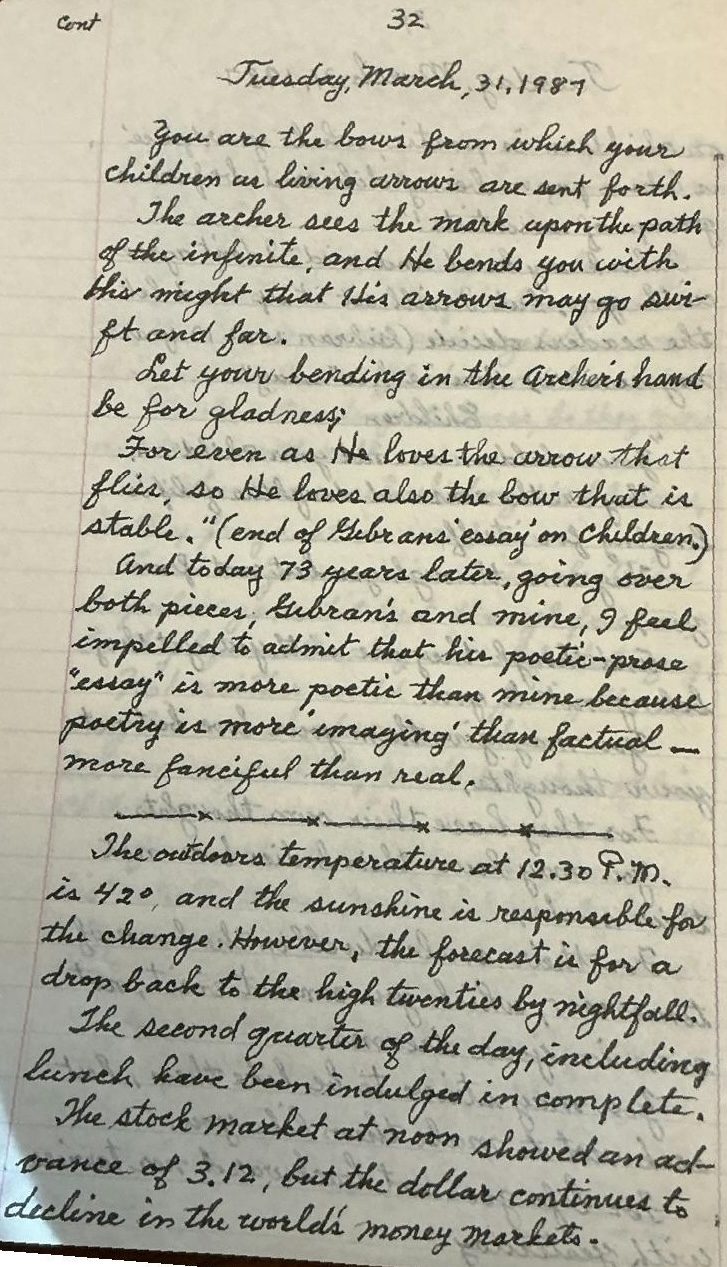 Cont
32
Tuesday, March, 31, 1987
You are the bows from which your
children as living arrows are sent forth.
The archer sees the mark upon the path
of the infinite, and He bends you with
His might that His arrows may go swi-
ft and far.
Let your bending in the Archer's hand
be for gladness;
For even as He loves the arrow that
flies, so He loves also the bow that is
stable." (end of Gibrans' essay' on Children.)
And today 73 years later, going over
both pieces, Gibran's and mine, I feel
impelled to admit that his poetic-prose
"essay" is more poetic than mine because
poetry is more 'imaging' than factual —
more fanciful than real.
The outdoors temperature at 12.30 P.M.
is 42°, and the sunshine is responsible for
the change. However, the forecast is for a
drop back to the high twenties by nightfall.
The second quarter of the day, including
lunch have been indulged in complete.
The stock market at noon showed an ad-
vance of 3.12, but the dollar continues to
decline in the world's money markets.